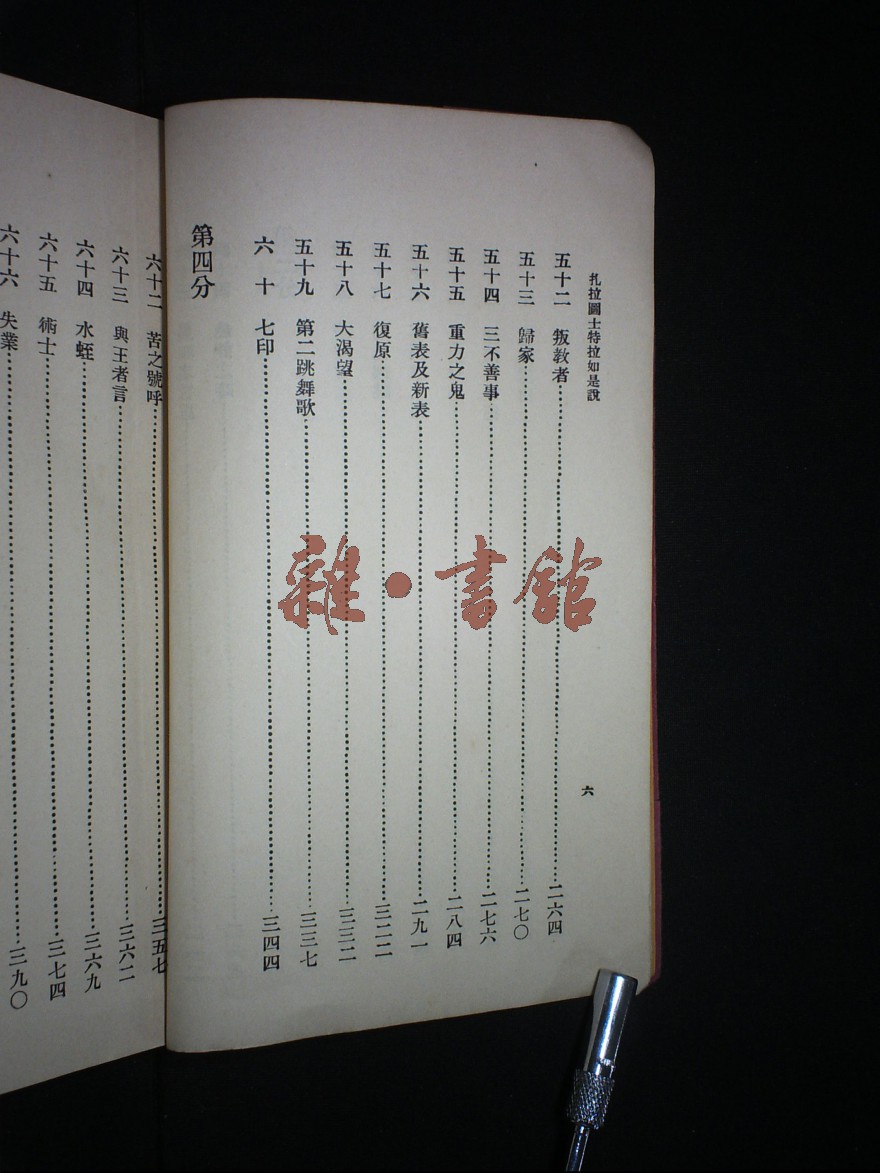 扎拉圖士特拉如是說
六
五十二 叛教者 二六四
五十三 歸家 二七〇
五十四 三不善事 二七六
五十五 重力之鬼 二八四
五十六 舊表及新表 二九一
五十七 復原 三二二
五十八 大渴望 三三二
五十九 第二跳舞歌 三三七
六十 七印 三四四
第四分
六十二 苦之號呼 三五七
六十三 與王者言 三六二
六十四 水蛭 三六九
六十五 術士 三七四
六十六 失業 三九〇
雜·書館